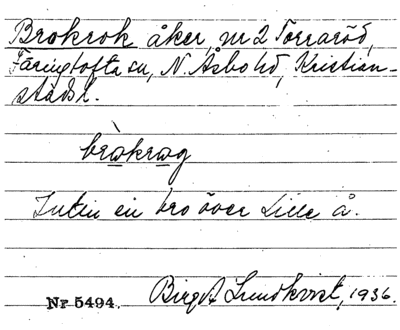 Brokrok åker, nr 2 Torraröd,
Färingtofta sn, N. Åsbo hd, Kristian-
stads l.
bròkrog
Intill en bro över Lille å.
Nr 5494. Birgit Lundkvist, 1936.